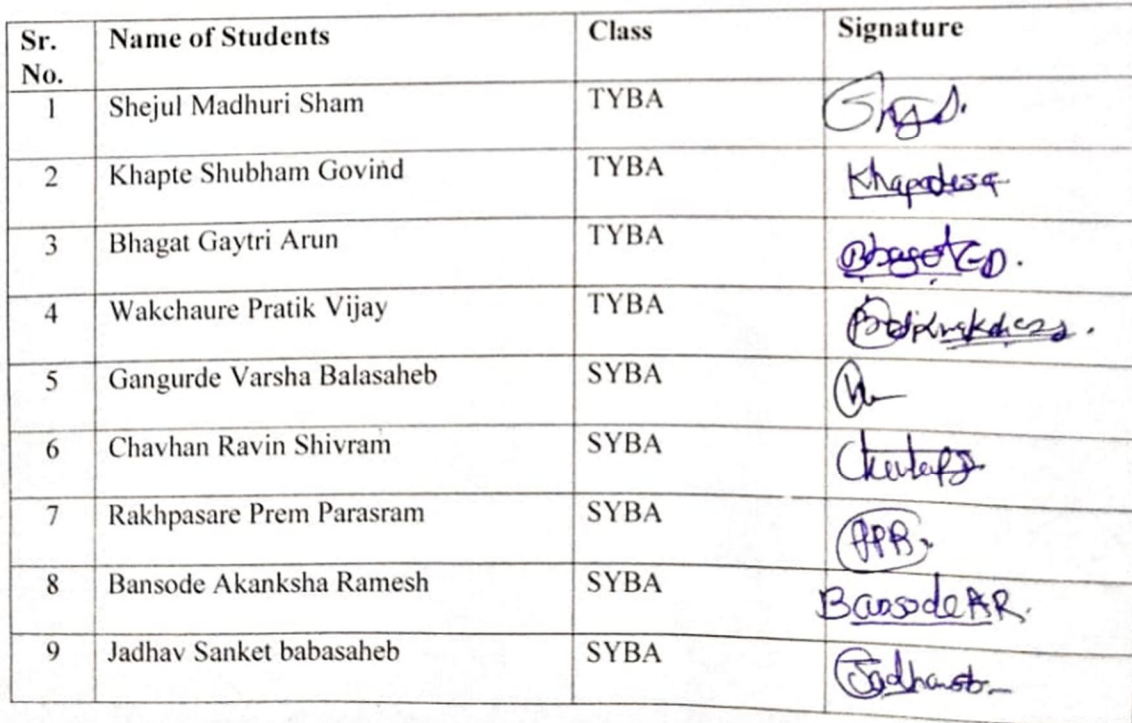 Sr. No. Name of Students Class Signature
1 Shejul Madhuri Sham TYBA
2 Khapte Shubham Govind TYBA
3 Bhagat Gaytri Arun TYBA
4 Wakchaure Pratik Vijay TYBA
5 Gangurde Varsha Balasaheb SYBA
6 Chavhan Ravin Shivram SYBA
7 Rakhpasare Prem Parasram SYBA
8 Bansode Akanksha Ramesh SYBA BansodeAR.
9 Jadhav Sanket babasaheb SYBA